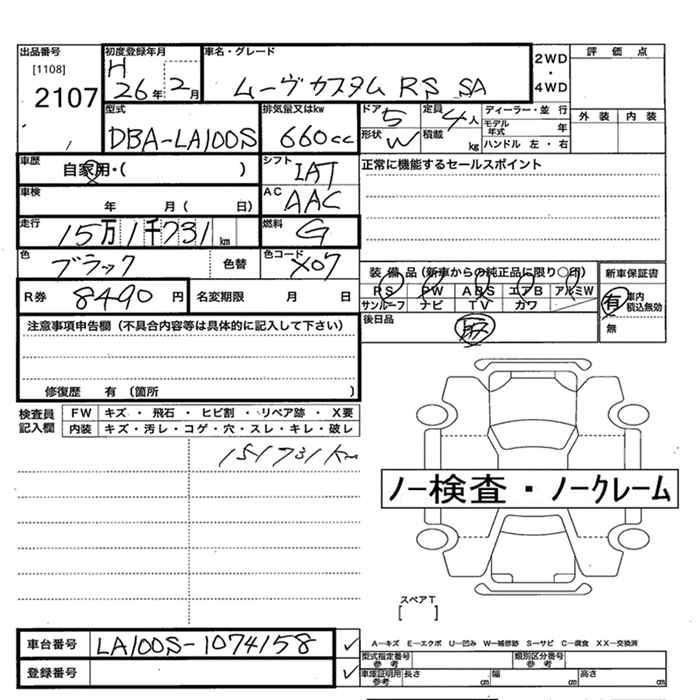 出品番号
[1108]
2107
初度登録年月
H
26年 2月
車名・グレード
ムーヴカスタム RS SA
2WD
・
4WD
評価点
外装 内装
型式
DBA-LA100S
排気量又はkw
660cc
ドア
5
定員
4人
形状
W
積載
kg
ディーラー・並行
モデル年式 年
ハンドル 左・右
車歴
自家用・( )
シフト
IAT
正常に機能するセールスポイント
車検
年 月( 日)
AC
AAC
走行
15万1千731km
燃料
G
色
ブラック
色替
色コード
X07
装備品(新車からの純正品に限り○印)
PS PW ABS エアB アルミW
サンルーフ ナビ TV カワ
新車保証書
有 車内積込無効
無
R券
8490円
名変期限 月 日
後日品
注意事項申告欄(不具合内容等は具体的に記入して下さい)
修復歴 有(箇所 )
検査員記入欄
FW キズ・飛石・ヒビ割・リペア跡・X要
内装 キズ・汚レ・コゲ・穴・スレ・キレ・破レ
151731km
ノー検査・ノークレーム
スペアT
[ ]
車台番号
LA100S-1074158
登録番号
A―キズ E―エクボ U―凹み W―補修跡 S―サビ C―腐食 XX―交換済
型式指定番号参考
類別区分番号参考
車庫証明用参考
長さ cm 幅 cm 高さ cm